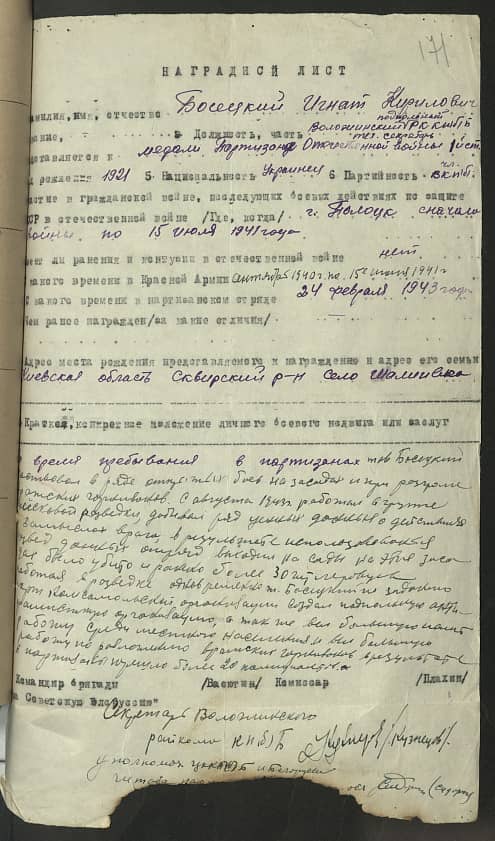 171
НАГРАДНОЙ ЛИСТ
амилия, имя, отчество Босецкий Игнат Кирилович
вание, Должность, часть Воложинский подпольный РК КП(б)Б тех. секретарь
едставляется к медали Партизана Отечественной войны I ст.
д рождения 1921 5 Национальность Украинец 6 Партийность чл. ВКП(б)
астие в гражданской войне, последующих боевых действиях по защите
СССР в отечественной войне /Где, когда/ г. Полоцк с начала
войны по 15 июля 1941 года
меет ли ранения и контузии в отечественной войне нет
какого времени в Красной Армии 1940 г. по 15 июля 1941 г.
С какого времени в партизанском отряде 24 февраля 1943 года
Чем ранее награжден /за какие отличия/ —
Адрес места рождения представляемого к награждению и адрес его семьи
Киевская область Сквирский р-н село
Краткое, конкретное изложение личного боевого подвига или заслуг
время пребывания в партизанах тов. Босецкий
участвовал в ряде открытых боев на засадах и при разгроме
вражеских гарнизонов. С августа 1943 г. работал в группе
разведки, добывал ряд ценных данных о действиях
замыслах врага, в результате использования
развед данных отряд выходил на засады на этих заса
дах было убито и ранено более 30 гитлеровцев
Работая в разведке одновременно т. Босецкий по заданию
комсомольской организации создал подпольную анти
фашистскую организацию, а так же вел большую
работу среди местного населения и вел большую
работу по разложению вражеских гарнизонов в результате
в партизаны пришло более 20
Командир бригады /Васютин/ Комиссар /Плахин/
а Советскую Белоруссию"
Секретарь Воложинского
райкома КП(б)Б /Кузнецов/.
уполномоч ЦК КП(б)Б